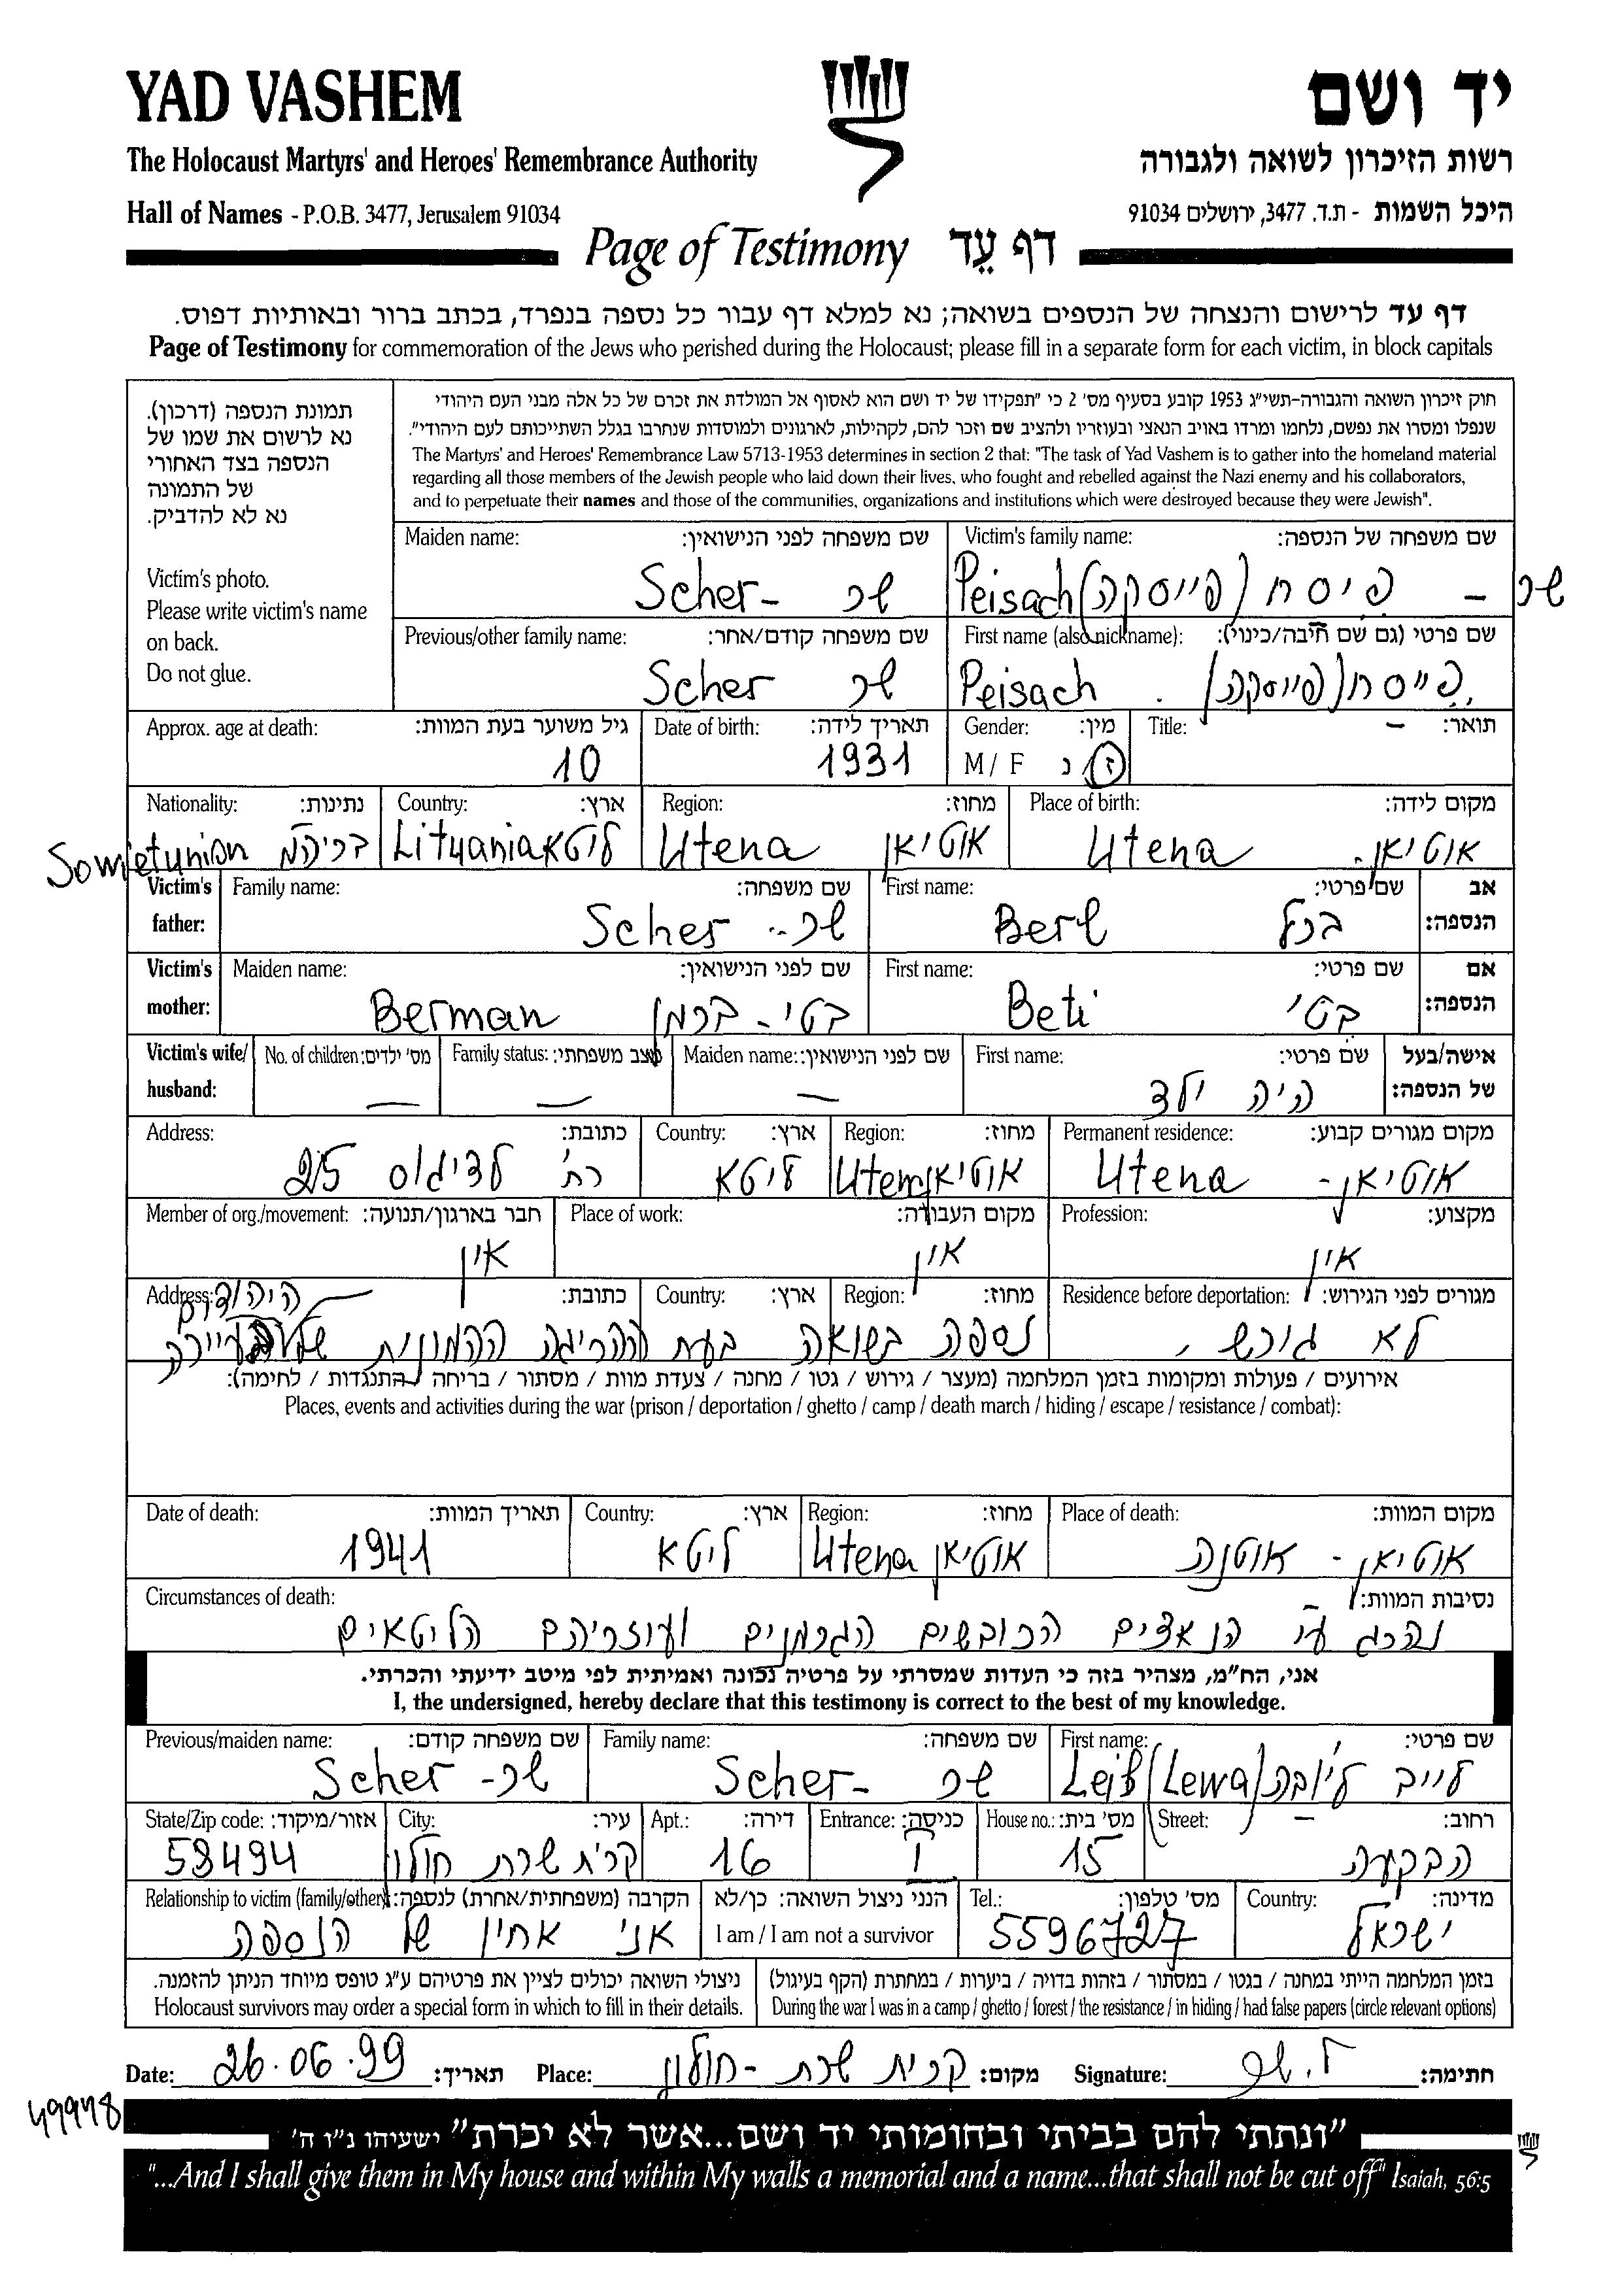 YAD VASHEM יד ושם
The Holocaust Martyrs' and Heroes' Remembrance Authority רשות הזיכרון לשואה ולגבורה
Hall of Names - P.O.B. 3477, Jerusalem 91034 היכל השמות - ת.ד. 3477, ירושלים 91034
Page of Testimony דף עֵד
דף עד לרישום והנצחה של הנספים בשואה; נא למלא דף עבור כל נספה בנפרד, בכתב ברור ובאותיות דפוס.
Page of Testimony for commemoration of the Jews who perished during the Holocaust; please fill in a separate form for each victim, in block capitals
תמונת הנספה (דרכון).
נא לרשום את שמו של
הנספה בצד האחורי
של התמונה
נא לא להדביק.
Victim's photo.
Please write victim's name
on back.
Do not glue.
חוק זיכרון השואה והגבורה-תשי"ג 1953 קובע בסעיף מס' 2 כי "תפקידו של יד ושם הוא לאסוף אל המולדת את זכרם של כל אלה מבני העם היהודי
שנפלו ומסרו את נפשם, נלחמו ומרדו באויב הנאצי ובעוזריו ולהציב שם וזכר להם, לקהילות, לארגונים ולמוסדות שנחרבו בגלל השתייכותם לעם היהודי".
The Martyrs' and Heroes' Remembrance Law 5713-1953 determines in section 2 that: "The task of Yad Vashem is to gather into the homeland material
regarding all those members of the Jewish people who laid down their lives, who fought and rebelled against the Nazi enemy and his collaborators,
and to perpetuate their names and those of the communities, organizations and institutions which were destroyed because they were Jewish".
Maiden name: שם משפחה לפני הנישואין: Victim's family name: שם משפחה של הנספה:
Scher- שר Peisach (פייסקה) פיסח - שר
Previous/other family name: שם משפחה קודם/אחר: First name (also nickname): שם פרטי (גם שם חיבה/כינוי):
Scher שר Peisach פייסח (פייסקה)
Approx. age at death: גיל משוער בעת המוות: Date of birth: תאריך לידה: Gender: מין: Title: תואר:
10 1931 M / F ז נ -
Nationality: נתינות: Country: ארץ: Region: מחוז: Place of birth: מקום לידה:
Sowietunion בריהמ Lithuania ליטא Utena אוטיאן Utena אוטיאן-
Victim's father: Family name: שם משפחה: First name: שם פרטי: אב הנספה:
Scher שר- Berl ברל
Victim's mother: Maiden name: שם לפני הנישואין: First name: שם פרטי: אם הנספה:
Berman בטי - ברמן Beti בטי
Victim's wife/ husband: No. of children: מס' ילדים: Family status: מצב משפחתי: Maiden name: שם לפני הנישואין: First name: שם פרטי: אישה/בעל של הנספה:
- - - היה ילד
Address: כתובת: Country: ארץ: Region: מחוז: Permanent residence: מקום מגורים קבוע:
רח' 25 ליטא Utena אוטיאן Utena אוטיאן-
Member of org./movement: חבר בארגון/תנועה: Place of work: מקום העבודה: Profession: מקצוע:
אין אין אין
Address: כתובת: Country: ארץ: Region: מחוז: Residence before deportation: מגורים לפני הגירוש:
לא גורש, נספה בשואה בעת ההריגה ההמונית של היהודים
אירועים / פעולות ומקומות בזמן המלחמה (מעצר / גירוש / גטו / מחנה / צעדת מוות / מסתור / בריחה / התנגדות / לחימה):
Places, events and activities during the war (prison / deportation / ghetto / camp / death march / hiding / escape / resistance / combat):
Date of death: תאריך המוות: Country: ארץ: Region: מחוז: Place of death: מקום המוות:
1941 ליטא Utena אוטיאן אוטיאן - אוטנה
Circumstances of death: נסיבות המוות:
נהרג ע"י הנאצים הכובשים הגרמנים ועוזריהם הליטאים
אני, הח"מ, מצהיר בזה כי העדות שמסרתי על פרטיה נכונה ואמיתית לפי מיטב ידיעתי והכרתי.
I, the undersigned, hereby declare that this testimony is correct to the best of my knowledge.
Previous/maiden name: שם משפחה קודם: Family name: שם משפחה: First name: שם פרטי:
Scher שר- Scher- שר Leib (Lewa) לייב ליובה
State/Zip code: אזור/מיקוד: City: עיר: Apt.: דירה: Entrance: כניסה: House no.: מס' בית: Street: רחוב:
58494 קרית שרת חולון 16 I 15 הבקעה
Relationship to victim (family/other): הקרבה (משפחתית/אחרת) לנספה: הנני ניצול השואה: כן/לא Tel.: מס' טלפון: Country: מדינה:
אני אחיין של הנספה I am / I am not a survivor 5596727 ישראל
ניצולי השואה יכולים לציין את פרטיהם ע"ג טופס מיוחד הניתן להזמנה. בזמן המלחמה הייתי במחנה / בגטו / במסתור / בזהות בדויה / ביערות / במחתרת (הקף בעיגול)
Holocaust survivors may order a special form in which to fill in their details. During the war I was in a camp / ghetto / forest / the resistance / in hiding / had false papers (circle relevant options)
Date: 26.06.99 תאריך: Place: קרית שרת - חולון מקום: Signature: ל. שר חתימה:
49948
"ונתתי להם בביתי ובחומותי יד ושם...אשר לא יכרת" ישעיהו נ"ו ה'
"...And I shall give them in My house and within My walls a memorial and a name...that shall not be cut off" Isaiah, 56:5